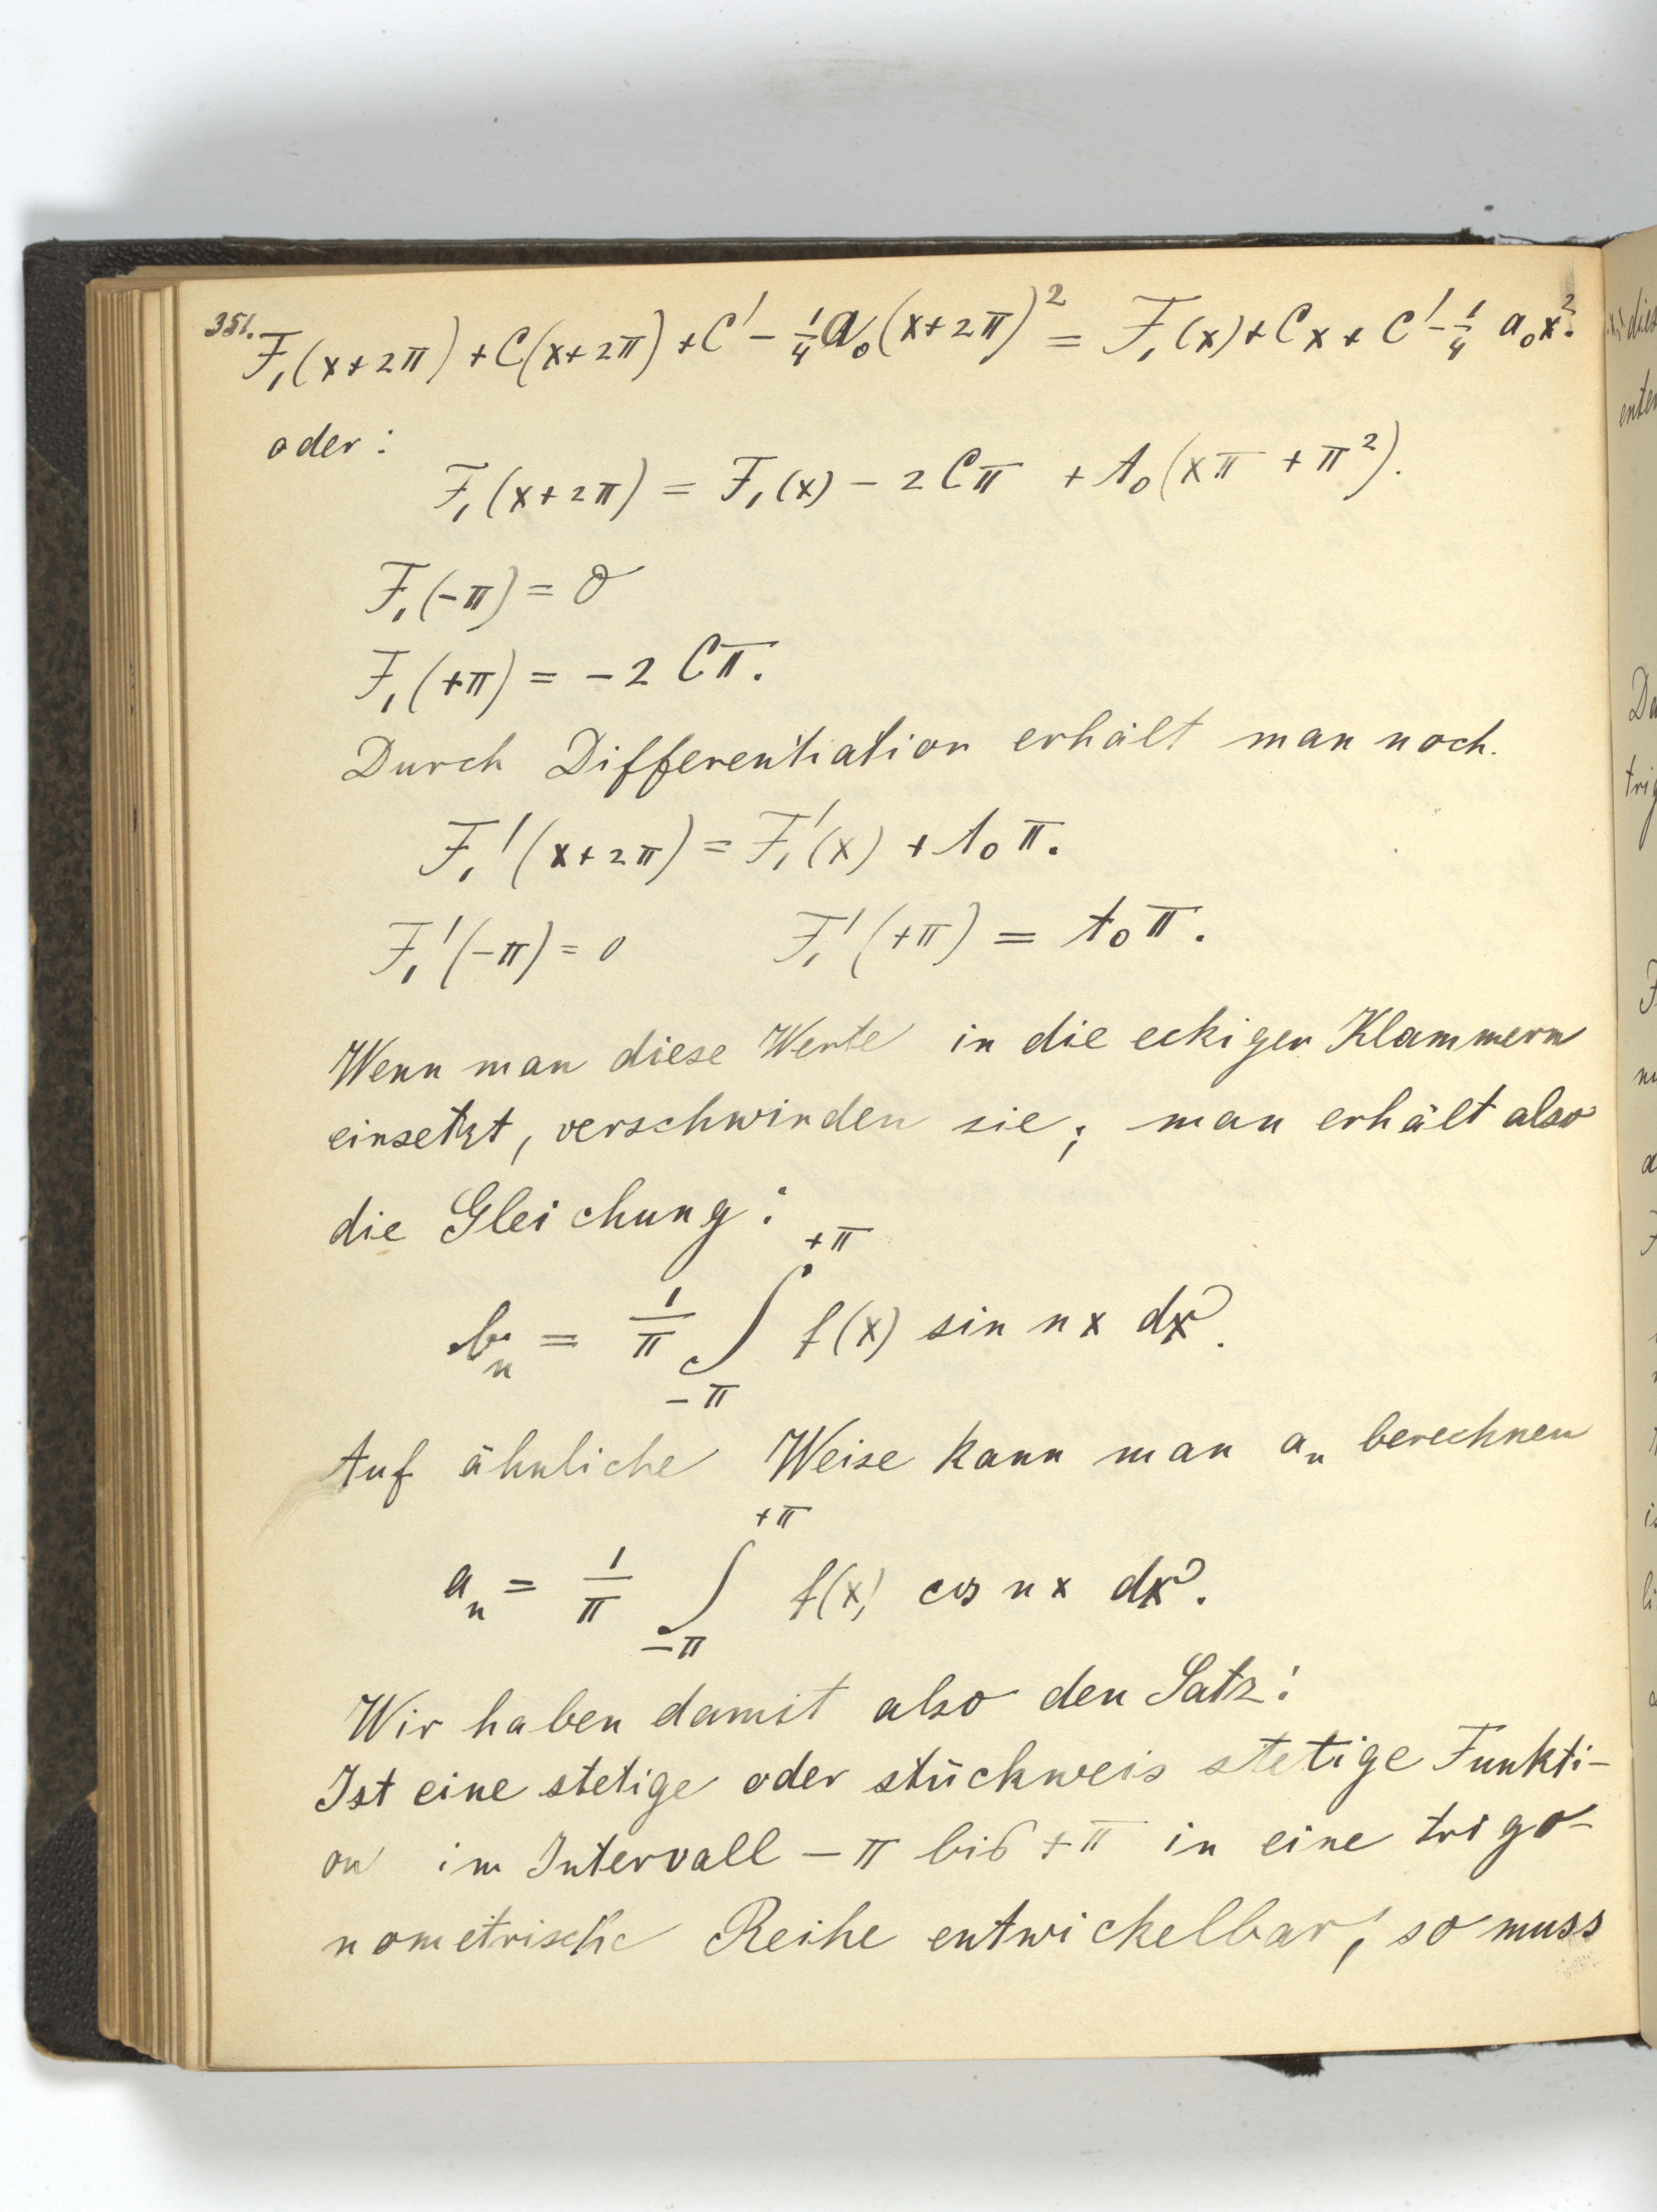 351.
F₁(x+2π) + C(x+2π) + C' - ¼ a₀(x+2π)² = F₁(x) + Cx + C' - ¼ a₀x².
oder:
F₁(x+2π) = F₁(x) - 2Cπ + A₀(xπ + π²).
F₁(-π) = 0
F₁(+π) = -2Cπ.
Durch Differentiation erhält man noch.
F₁'(x+2π) = F₁'(x) + A₀π.
F₁'(-π) = 0 F₁'(+π) = A₀π.
Wenn man diese Werte in die eckigen Klammern
einsetzt, verschwinden sie; man erhält also
die Gleichung:
bₙ = 1/π ∫_{-π}^{+π} f(x) sin nx dx.
Auf ähnliche Weise kann man aₙ berechnen
aₙ = 1/π ∫_{-π}^{+π} f(x) cos nx dx.
Wir haben damit also den Satz:
Ist eine stetige oder stückweis stetige Funkti-
on im Intervall -π bis +π in eine trigo-
nometrische Reihe entwickelbar, so muss